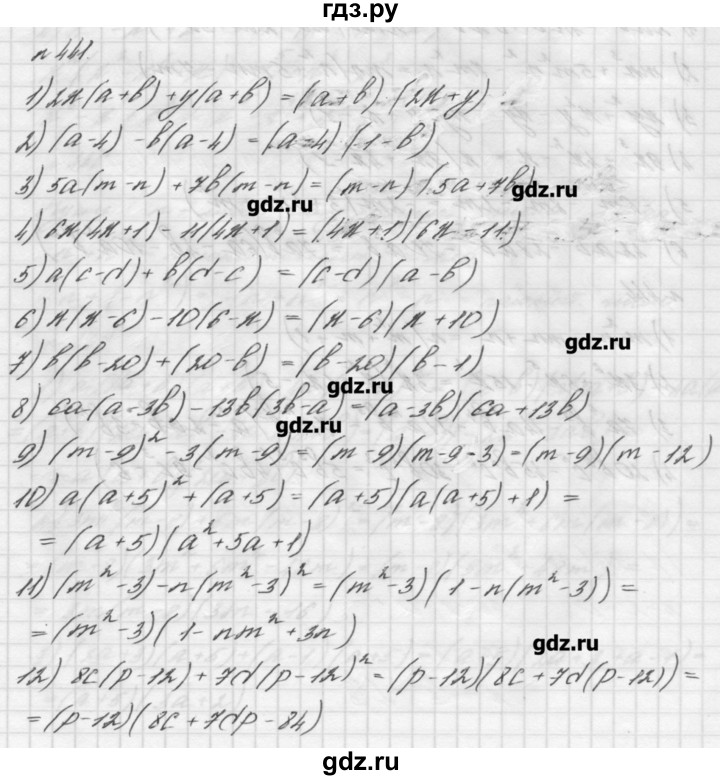 гдз.ру
n 441.
1) 2x(a+b)+y(a+b) = (a+b)(2x+y)
2) (a-4) - b(a-4) = (a-4)(1-b)
3) 5a(m-n) + 7b(m-n) = (m-n)(5a+7b)
gdz.ru
gdz.ru
4) 6x(4x+1) - 11(4x+1) = (4x+1)(6x-11)
5) a(c-d) + b(d-c) = (c-d)(a-b)
6) x(x-6) - 10(6-x) = (x-6)(x+10)
gdz.ru
7) b(b-20) + (20-b) = (b-20)(b-1)
gdz.ru
8) 6a(a-3b) - 13b(3b-a) = (a-3b)(6a+13b)
gdz.ru
9) (m-9)² - 3(m-9) = (m-9)(m-9-3) = (m-9)(m-12)
10) a(a+5)² + (a+5) = (a+5)(a(a+5)+1) =
= (a+5)(a²+5a+1)
11) (m²-3) - n(m²-3)² = (m²-3)(1-n(m²-3)) =
= (m²-3)(1-nm²+3n)
gdz.ru
12) 8c(p-12) + 7d(p-12)² = (p-12)(8c+7d(p-12)) =
= (p-12)(8c+7dp-84)
gdz.ru